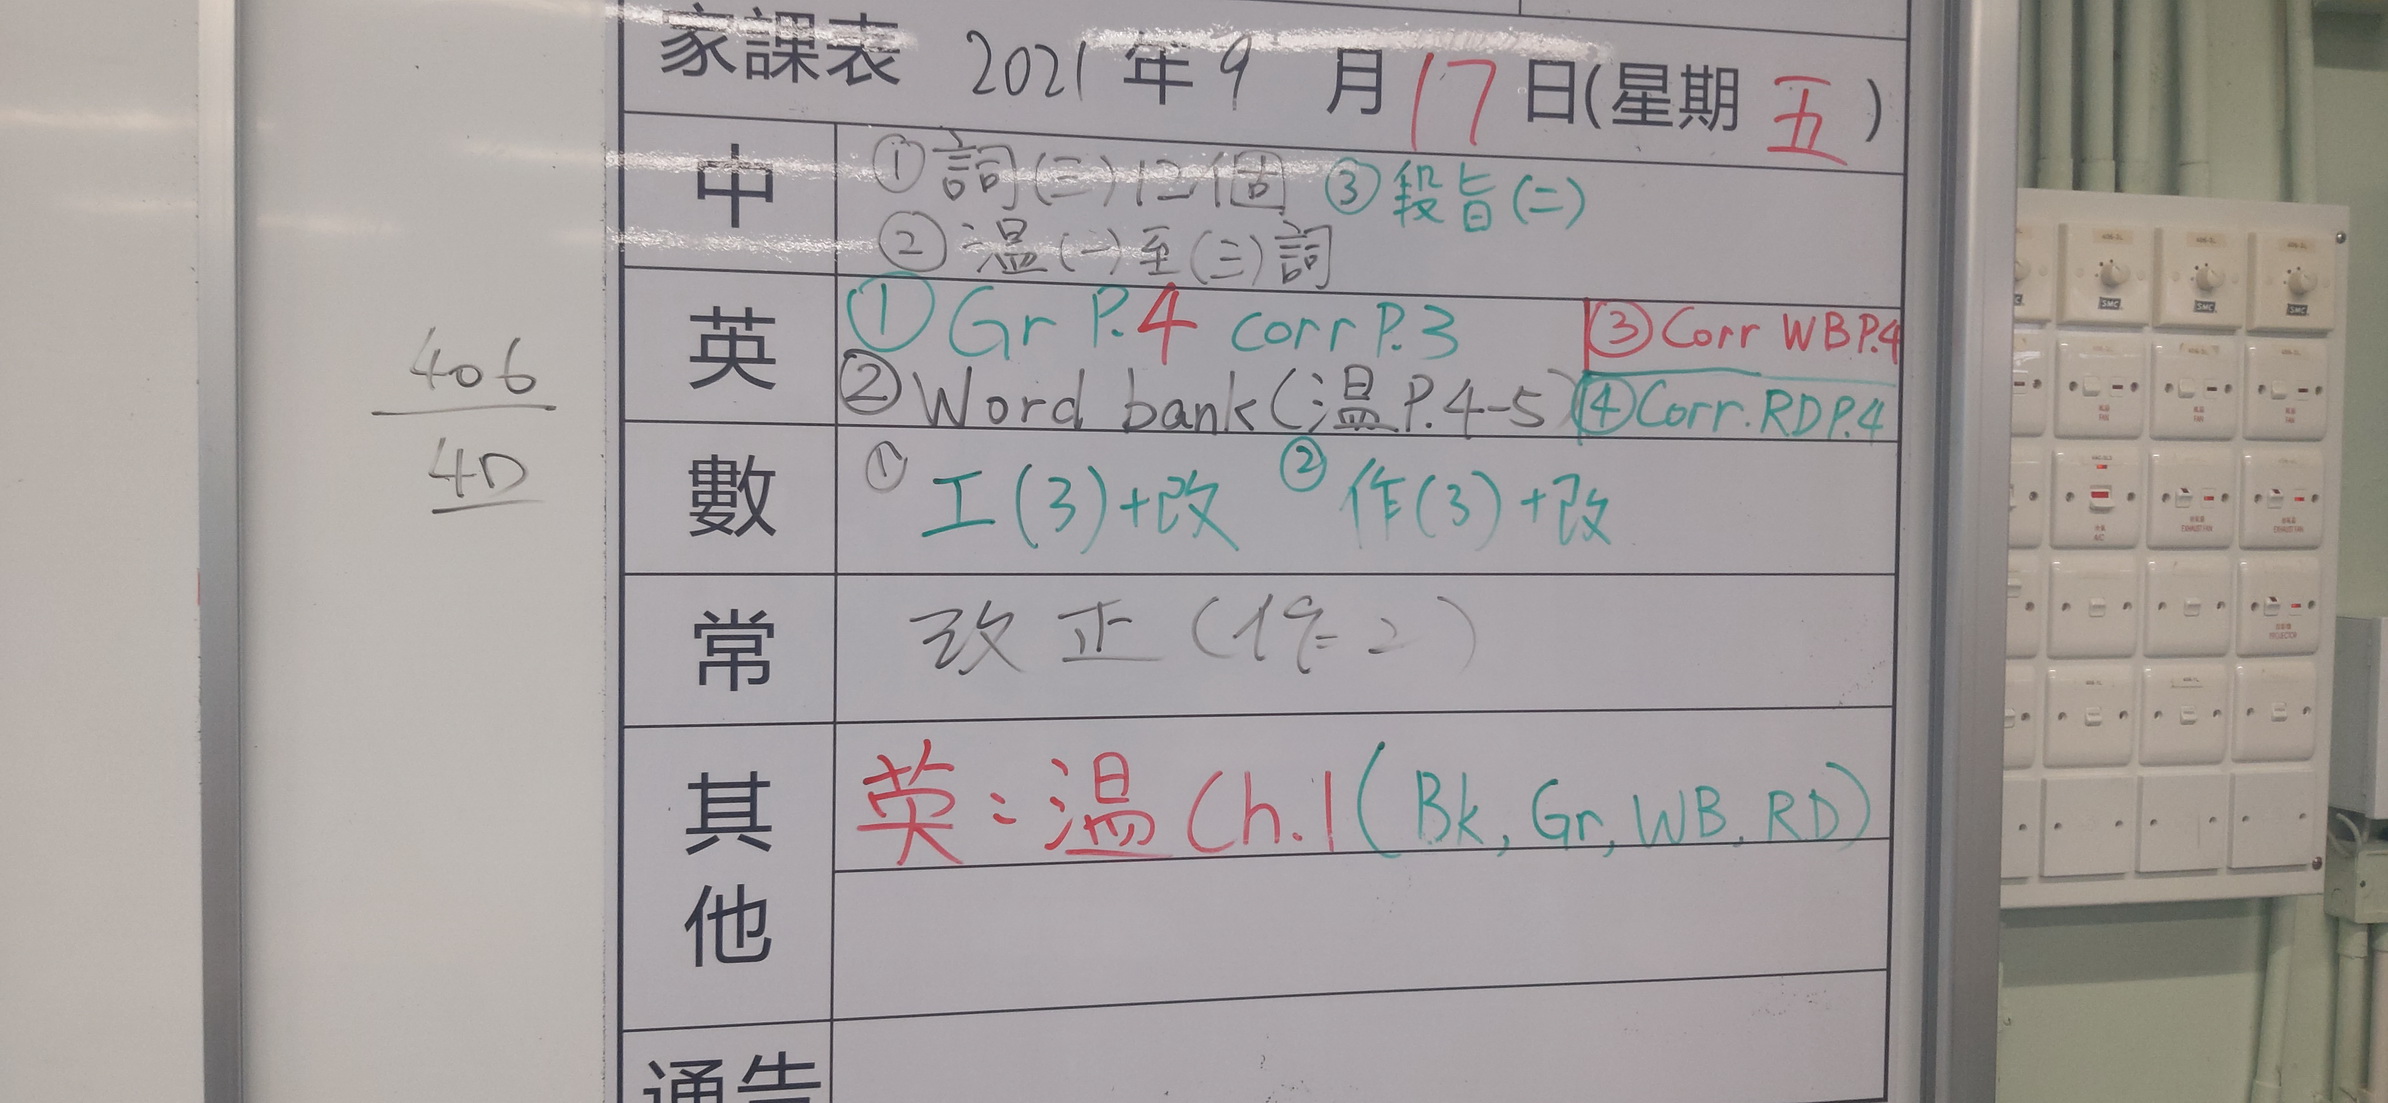 家課表 2021年9月17日(星期五)
中
①詞(三)12個 ③段旨(二)
②溫(一)至(三)詞
英
①Gr P.4 corr P.3 ③Corr WB P.4
②Word bank(溫P.4-5) ④Corr. RD P.4
406
4D
數
①工(3)+改 ②作(3)+改
常
改正(作二)
其他
英:溫Ch.1(Bk, Gr, WB, RD)
通告